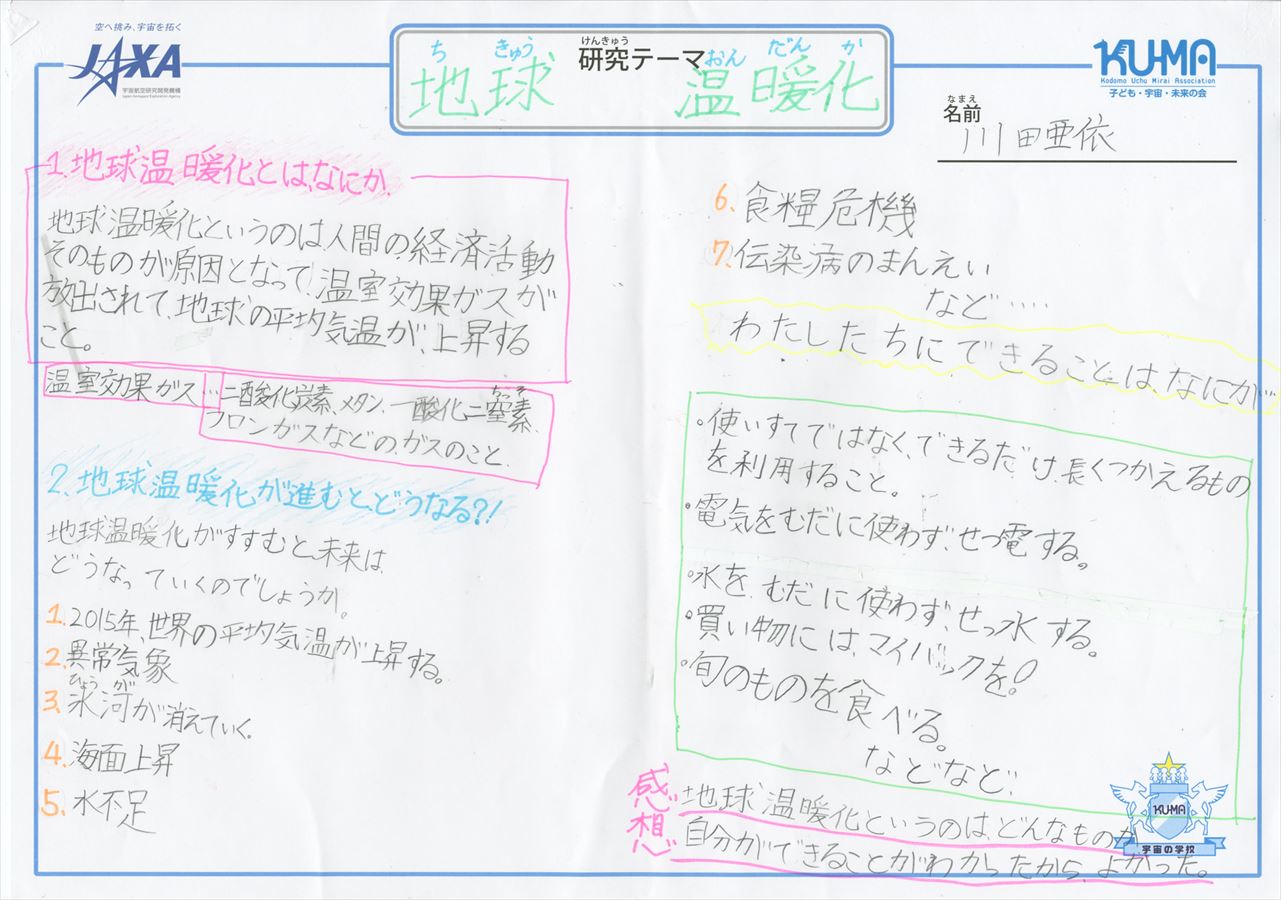 空へ挑み、宇宙を拓く
JAXA
宇宙航空研究開発機構
Japan Aerospace Exploration Agency
けんきゅう
研究テーマ
ち きゅう おん だん か
地球 温暖化
KU-MA
Kodomo Uchu Mirai Association
子ども・宇宙・未来の会
なまえ
名前
川田亜依
1.地球温暖化とは、なにか。
地球温暖化というのは人間の経済活動
そのものが原因となって、温室効果ガスが
放出されて、地球の平均気温が、上昇する
こと。
温室効果ガス…二酸化炭素、メタン、一酸化二窒素、
ちっそ
フロンガスなどのガスのこと。
2.地球温暖化が進むと、どうなる?!
地球温暖化がすすむと、未来は
どうなっていくのでしょうか。
1.2015年、世界の平均気温が上昇する。
2.異常気象
ひょうが
3.氷河が消えていく。
4.海面上昇
5.水不足
6.食糧危機
7.伝染病のまんえい
など‥‥
わたしたちにできることは、なにか…
・使いすてではなく、できるだけ、長くつかえるもの
を利用すること。
・電気をむだに使わず、せつ電する。
・水を、むだに使わず、せっ水する。
・買い物には、マイバックを!
・旬のものを食べる。
などなど、
感想
地球温暖化というのは、どんなものか、
自分ができることがわかったから、よかった。
KU-MA
宇宙の学校